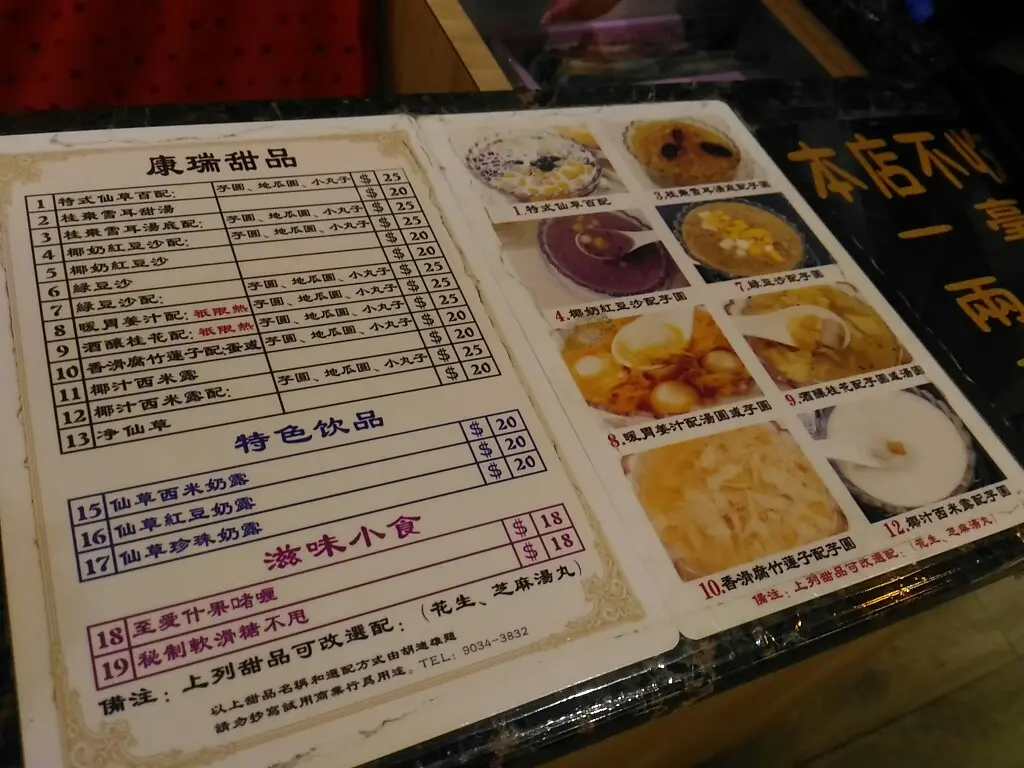 康瑞甜品
1 特式仙草百配: 芋圓、地瓜圓、小丸子 $ 25
2 桂棗雪耳甜湯 $ 20
3 桂棗雪耳湯底配: 芋圓、地瓜圓、小丸子 $ 25
4 椰奶紅豆沙配: 芋圓、地瓜圓、小丸子 $ 25
5 椰奶紅豆沙 $ 20
6 綠豆沙 $ 20
7 綠豆沙配: 芋圓、地瓜圓、小丸子 $ 25
8 暖胃姜汁配: 祗限熱 芋圓、地瓜圓、小丸子 $ 25
9 酒釀桂花配: 祗限熱 芋圓、地瓜圓、小丸子 $ 25
10 香滑腐竹蓮子配:蛋或 芋圓、地瓜圓、小丸子 $ 25
11 椰汁西米露 $ 20
12 椰汁西米露配: 芋圓、地瓜圓、小丸子 $ 25
13 净仙草 $ 20
特色饮品
15 仙草西米奶露 $ 20
16 仙草紅豆奶露 $ 20
17 仙草珍珠奶露 $ 20
滋味小食
18 至愛什果啫喱 $ 18
19 秘制軟滑糖不甩 $ 18
備注: 上列甜品可改選配: (花生、芝麻湯丸)
以上甜品名稱和選配方式由胡迪標題
請勿抄寫試用商業行爲用途。TEL: 9034-3832
1.特式仙草百配
3.桂棗雪耳湯底配芋圓
4.椰奶紅豆沙配芋圓
7.綠豆沙配芋圓
8.暖胃姜汁配湯圓或芋圓
9.酒釀桂花配芋圓或湯圓
10.香滑腐竹蓮子配芋圓
12.椰汁西米露配芋圓
備注: 上列甜品可改選配:(花生、芝麻湯丸)
本店不收
一毫
兩